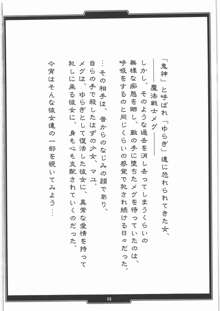 「鬼神」と呼ばれ「ゆらぎ」達に恐れられてきた女、
魔法戦士メグ…
しかし、そのような過去を消し去ってしまうくらいの
無様な痴態を晒し、敵の手に堕ちたメグを待っていたのは、
呼吸をするのと同じくらいの感覚で犯され続ける日々だった。
…その相手は、昔からのなじみの顔であり、
自らの手で殺したはずの少女、マユ。
メグは、ゆらぎとして復活した彼女に、異常な愛情を持って
犯しに来る彼女に、身も心も支配されていくのだった。
今宵はそんな彼女達の一部を覗いてみよう…